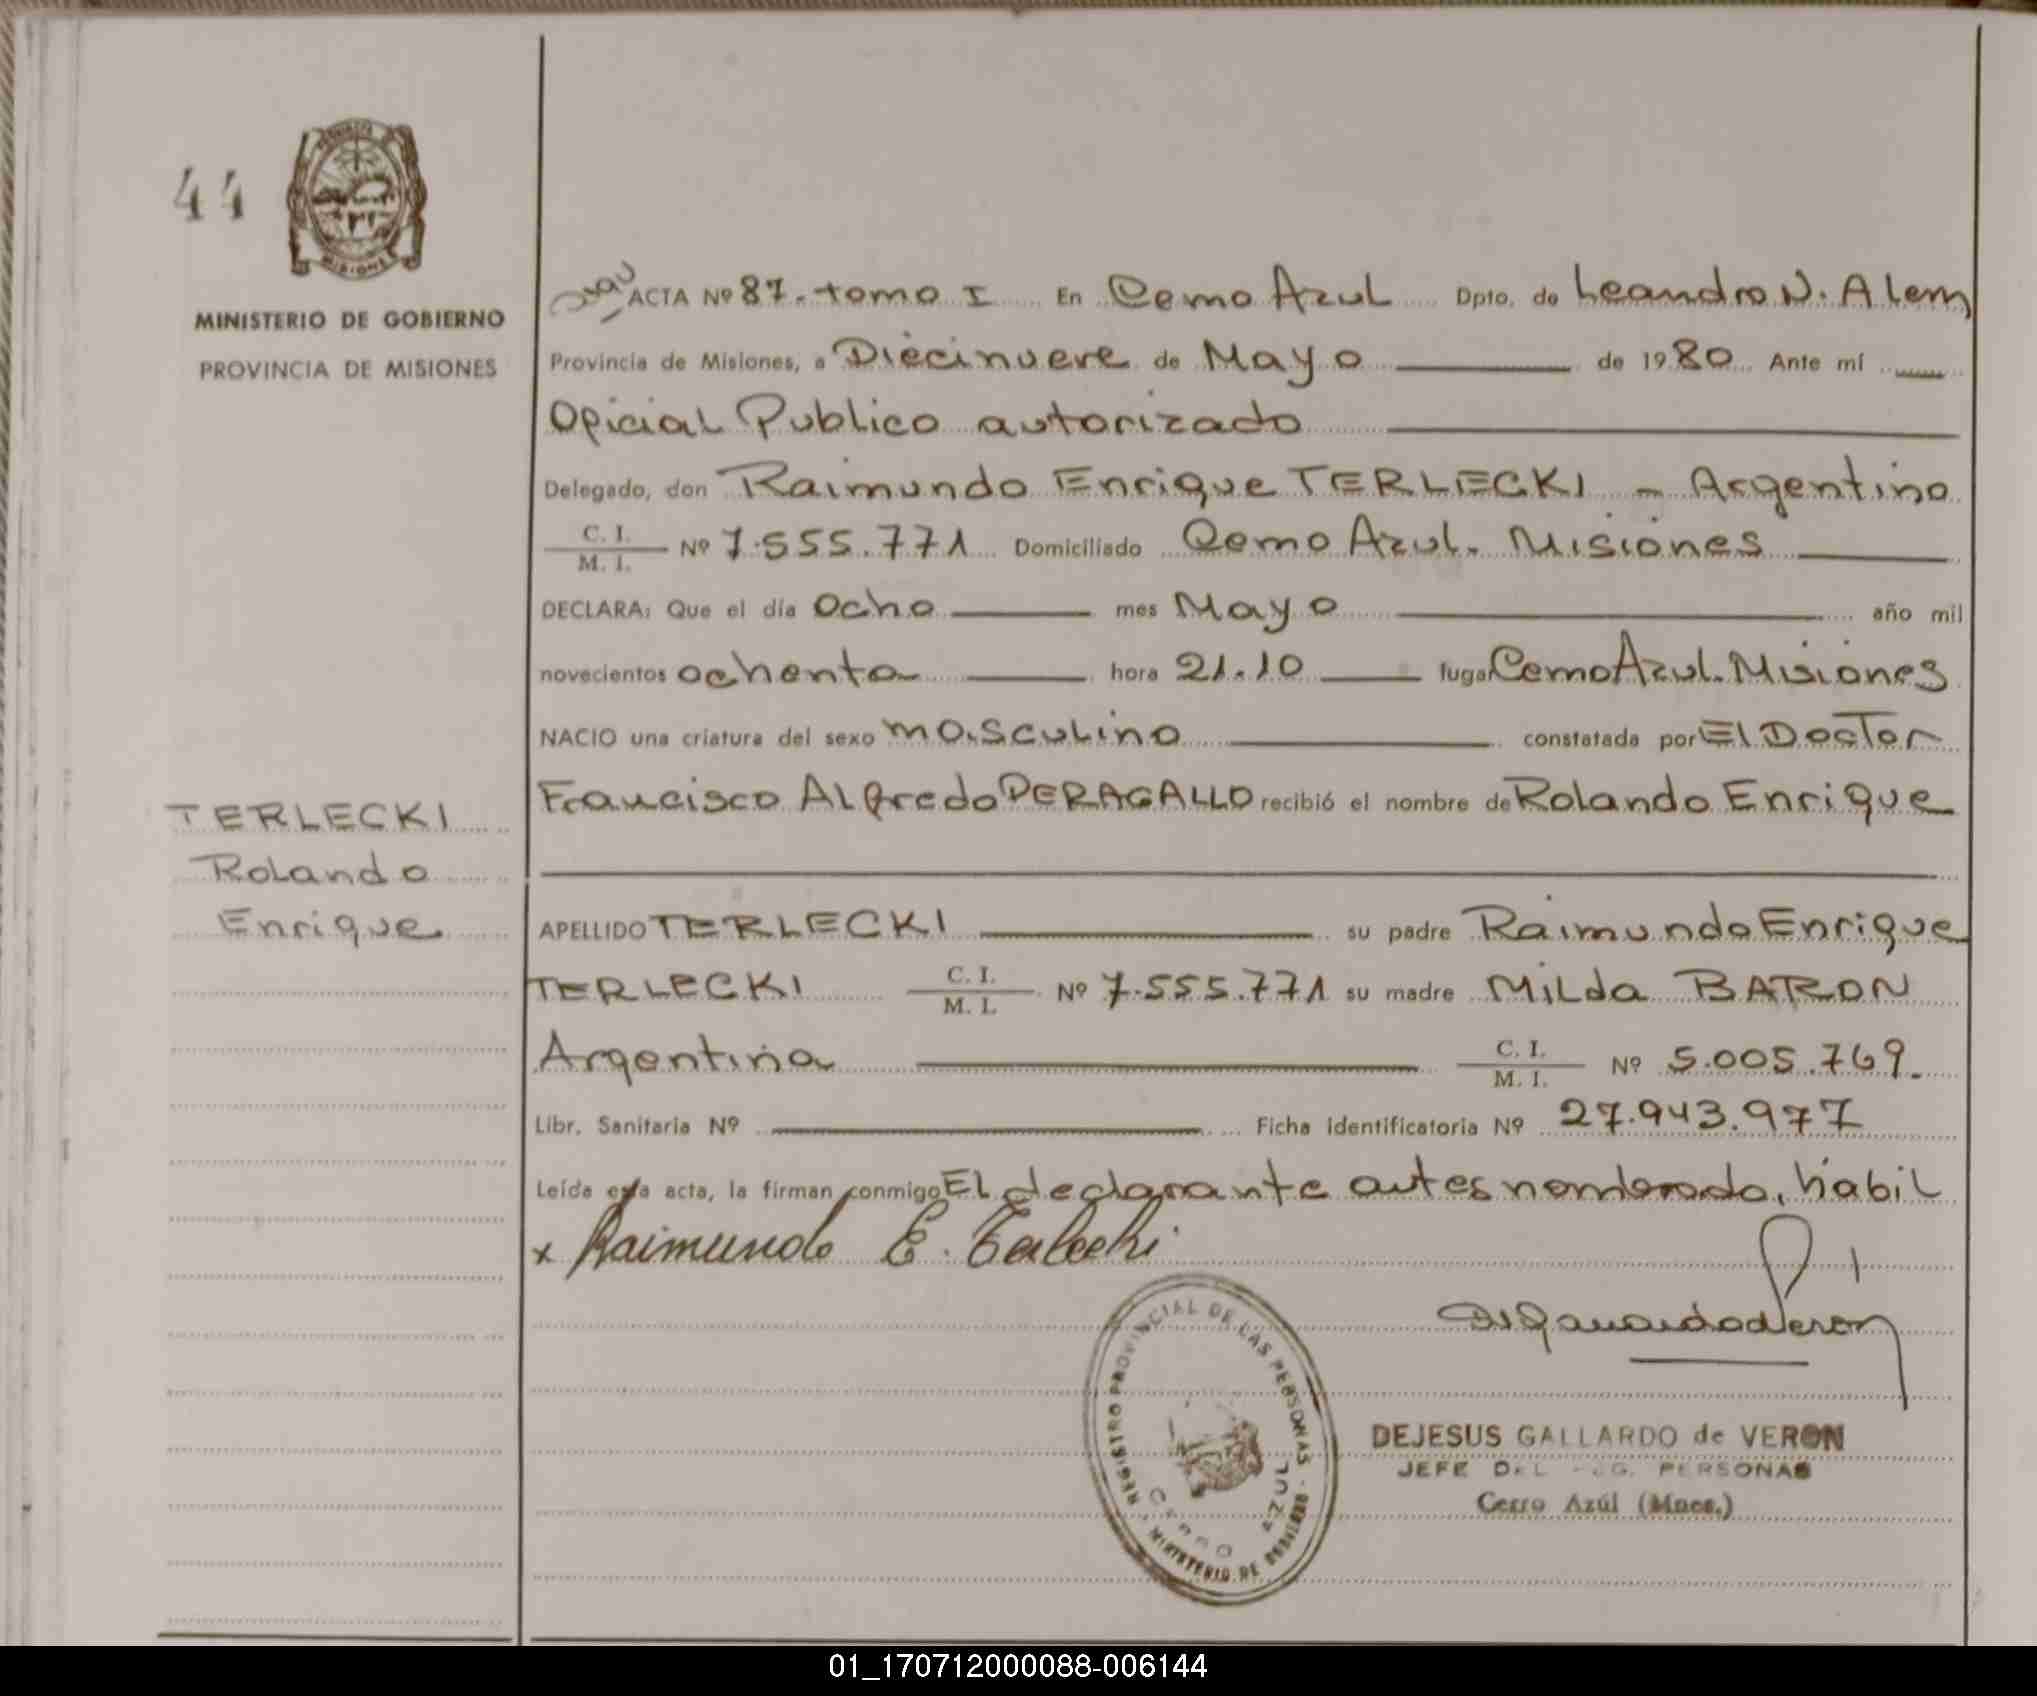 44
MINISTERIO DE GOBIERNO
PROVINCIA DE MISIONES
ACTA Nº 87. tomo I En Cerro Azul Dpto. de Leandro N. Alem
Provincia de Misiones, a Diecinueve de Mayo de 1980 Ante mí
Oficial Publico autorizado
Delegado, don Raimundo Enrique TERLECKI - Argentino
C. I.
M. I. Nº 7.555.771 Domiciliado Cerro Azul. Misiones
DECLARA: Que el día Ocho mes Mayo año mil
novecientos ochenta hora 21.10 lugar Cerro Azul. Misiones
NACIO una criatura del sexo masculino constatada por El Doctor
Francisco Alfredo PERAGALLO recibió el nombre de Rolando Enrique
TERLECKI
Rolando
Enrique
APELLIDO TERLECKI su padre Raimundo Enrique
TERLECKI C. I.
M. I. Nº 7.555.771 su madre Milda BARON
Argentina C. I.
M. I. Nº 5.005.769.
Libr. Sanitaria Nº Ficha Identificatoria Nº 27.943.977
Leída esta acta, la firman conmigo El declarante antes nombrado, habil
x Raimundo E. Terlecki
REGISTRO PROVINCIAL DE LAS PERSONAS - MINISTERIO DE GOBIERNO
CERRO AZUL
DEJESUS GALLARDO de VERON
JEFE DEL REG. PERSONAS
Cerro Azúl (Mnes.)
01_170712000088-006144